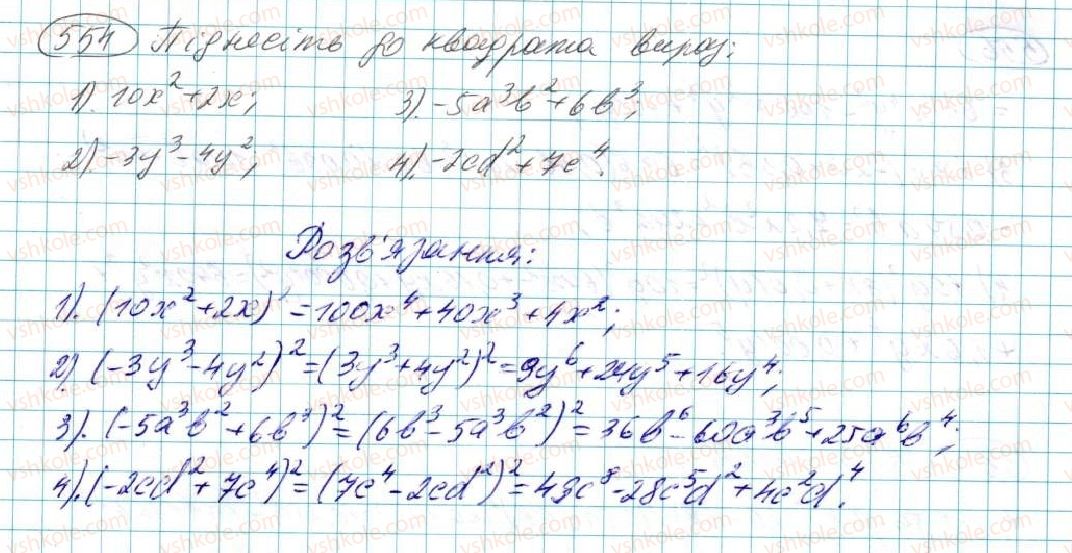 554 Піднесіть до квадрата вираз:
1). 10x²+2x; 3). -5a³b²+6b³;
2). -3y³-4y²; 4). -2cd²+7c⁴.
Розв'язання:
1). (10x²+2x)² = 100x⁴+40x³+4x²;
2) (-3y³-4y²)² = (3y³+4y²)² = 9y⁶+24y⁵+16y⁴;
3). (-5a³b²+6b³)² = (6b³-5a³b²)² = 36b⁶-60a³b⁵+25a⁶b⁴;
4). (-2cd²+7c⁴)² = (7c⁴-2cd²)² = 49c⁸-28c⁵d²+4c²d⁴.
vshkole.com